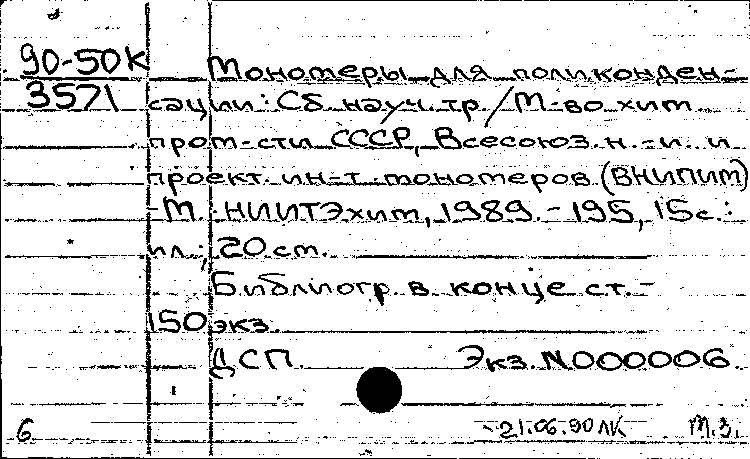 90-50К Мономеры для поликонден-
3571 сации: Сб. науч. тр. / М-во хим.
пром-сти СССР, Всесоюз. н.-и. и
проект. ин-т мономеров (ВНИПИМ)
-М.: НИИТЭхим, 1989. - 195, 15 с.:
ил.; 20 см.
Библиогр. в конце ст. -
150 экз.
ДСП. Экз. N000006
6 21.06.90 ЛК М.З.